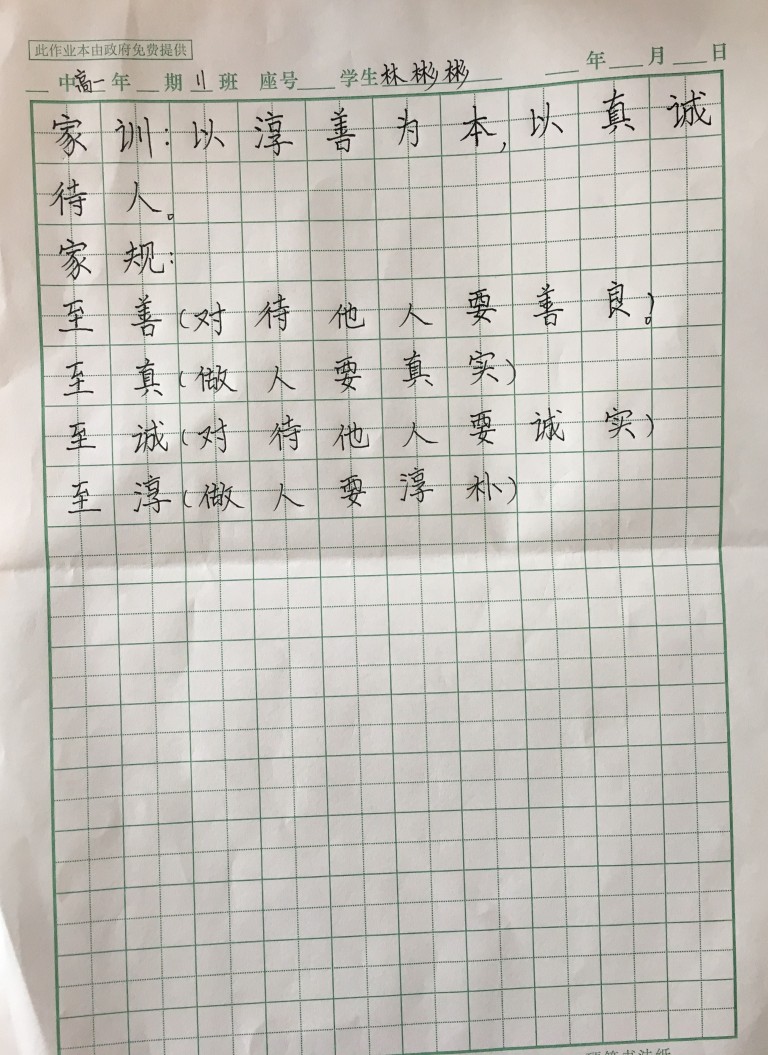 此作业本由政府免费提供
中高一年 期11班 座号 学生林彬彬 年 月 日
家训:以淳善为本,以真诚
待人。
家规:
至善(对待他人要善良)
至真(做人要真实)
至诚(对待他人要诚实)
至淳(做人要淳朴)